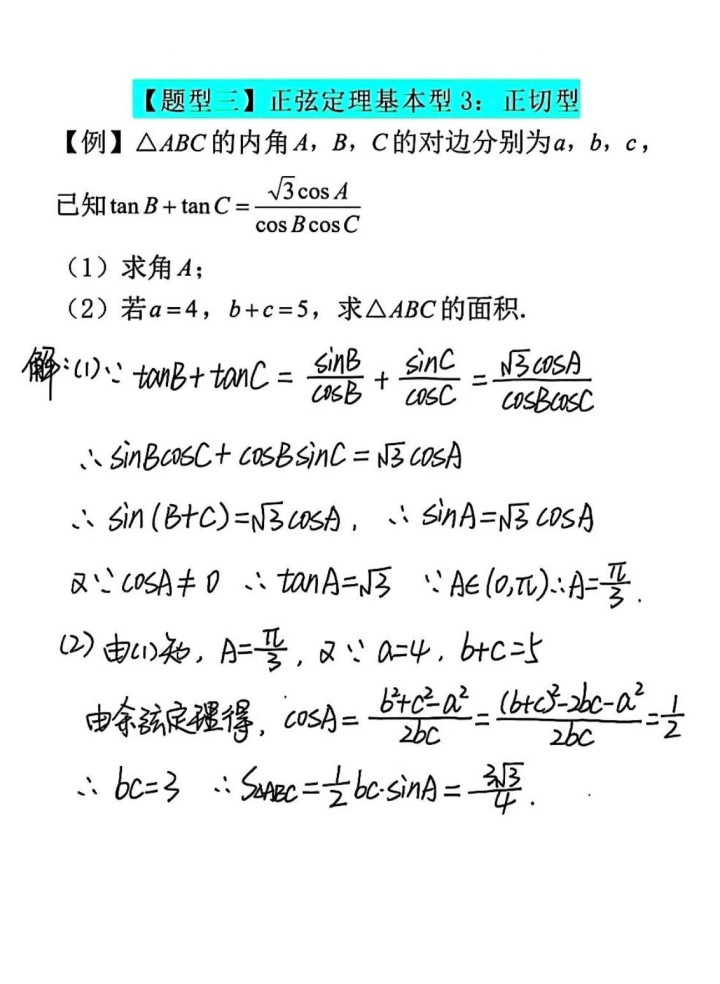 【题型三】正弦定理基本型 3：正切型
【例】△ABC 的内角 A，B，C 的对边分别为a，b，c，
已知 tan B + tan C = √3 cos A / (cos B cos C)
（1）求角 A；
（2）若 a = 4，b + c = 5，求△ABC 的面积.
解:(1)∵ tanB + tanC = sinB/cosB + sinC/cosC = √3cosA/(cosBcosC)
∴ sinBcosC + cosBsinC = √3cosA
∴ sin(B+C)=√3cosA, ∴ sinA=√3cosA
又∵ cosA≠0 ∴ tanA=√3 ∵A∈(0,π)∴A=π/3.
(2) 由(1)知, A=π/3, 又∵ a=4, b+c=5
由余弦定理得, cosA = (b²+c²-a²)/2bc = ((b+c)²-2bc-a²)/2bc = 1/2
∴ bc=3 ∴ S△ABC = 1/2 bc·sinA = 3√3/4.